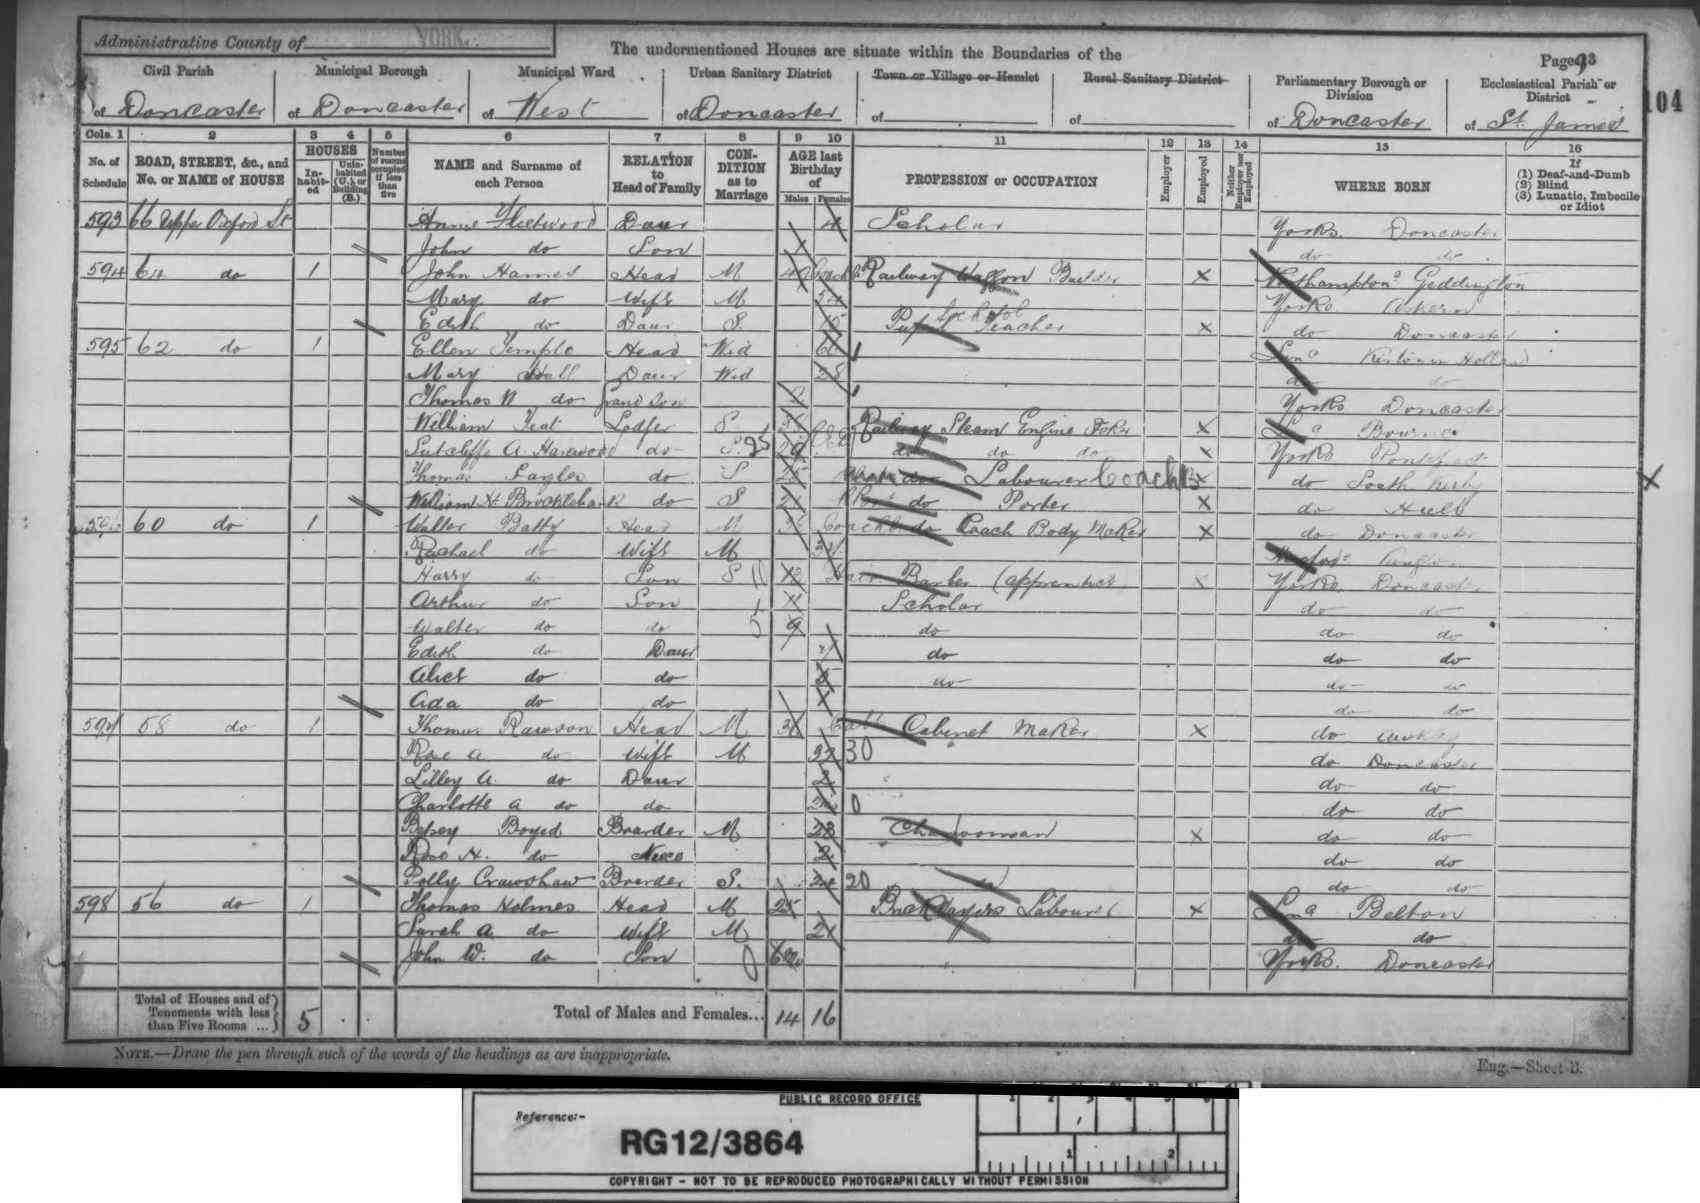 Administrative County of YORK.
The undermentioned Houses are situate within the Boundaries of the
Page 93
104
Civil Parish of Doncaster
Municipal Borough of Doncaster
Municipal Ward of West
Urban Sanitary District of Doncaster
Town or Village or Hamlet of
Rural Sanitary District of
Parliamentary Borough or Division of Doncaster
Ecclesiastical Parish or District of St. James
Cols. 1 2 3 4 5 6 7 8 9 10 11 12 13 14 15 16
No. of Schedule
ROAD, STREET, &c., and No. or NAME of HOUSE
HOUSES
In-habit-ed
Unin-habited (U.), or Building (B.)
Number of rooms occupied if less than five
NAME and Surname of each Person
RELATION to Head of Family
CON-DITION as to Marriage
AGE last Birthday of
Males Females
PROFESSION or OCCUPATION
Employer
Employed
Neither Employer nor Employed
WHERE BORN
If
(1) Deaf-and-Dumb
(2) Blind
(3) Lunatic, Imbecile or Idiot
593 66 Upper Oxford St Annie Fleetwood Daur Scholar Yorks. Doncaster
John do Son do do
594 64 do 1 John Hames Head M 49 Railway Waggon Builder X Northampton Geddington
Mary do Wife M 54 Yorks. Askern
Edith do Daur S. 15 Pupil Teacher School X do Doncaster
595 62 do 1 Ellen Temple Head Wid Kirton in Holland
Mary Hall Daur Wid 28 do do
Thomas W do Grand Son Yorks Doncaster
William Teat Lodger S Railway Steam Engine X Bourne
Sutcliffe A. do S. 25 do do do X Yorks Pontefract
Thomas do S 25 Labourer Coach X do South Kirby
William H. Brocklebank do S 21 do Porter X do Hull
60 do 1 Walter Batty Head M do Coach Body Maker X do Doncaster
Rachael do Wife M
Harry do Son S Hair Barber (apprentice X Yorks. Doncaster
Arthur do Son 11 Scholar do do
Walter do do 9 do do do
Edith do Daur do do do
Alice do do do do do
Ada do do do do
597 58 do 1 Thomas Rawson Head M Cabinet Maker X do
Rose A do Wife M 32 30 do Doncaster
Lilley A. do Daur do do
Charlotte A do do 0 do do
Betsey Boyed Boarder M 28 Charwoman X do do
Rose H. do Niece 2 do do
Polly Crawshaw Boarder S. 20 do do do
598 56 do 1 Thomas Holmes Head M 25 Bricklayers Labourer X Belton
Sarah A do Wife M 21 do do
John W. do Son 0 Yorks. Doncaster
Total of Houses and of Tenements with less than Five Rooms ... 5
Total of Males and Females... 14 16
NOTE.—Draw the pen through such of the words of the headings as are inappropriate.
Eng.—Sheet B.
PUBLIC RECORD OFFICE
1 2 3 4 5 6
Reference:-
RG12/3864
1 2
COPYRIGHT - NOT TO BE REPRODUCED PHOTOGRAPHICALLY WITHOUT PERMISSION